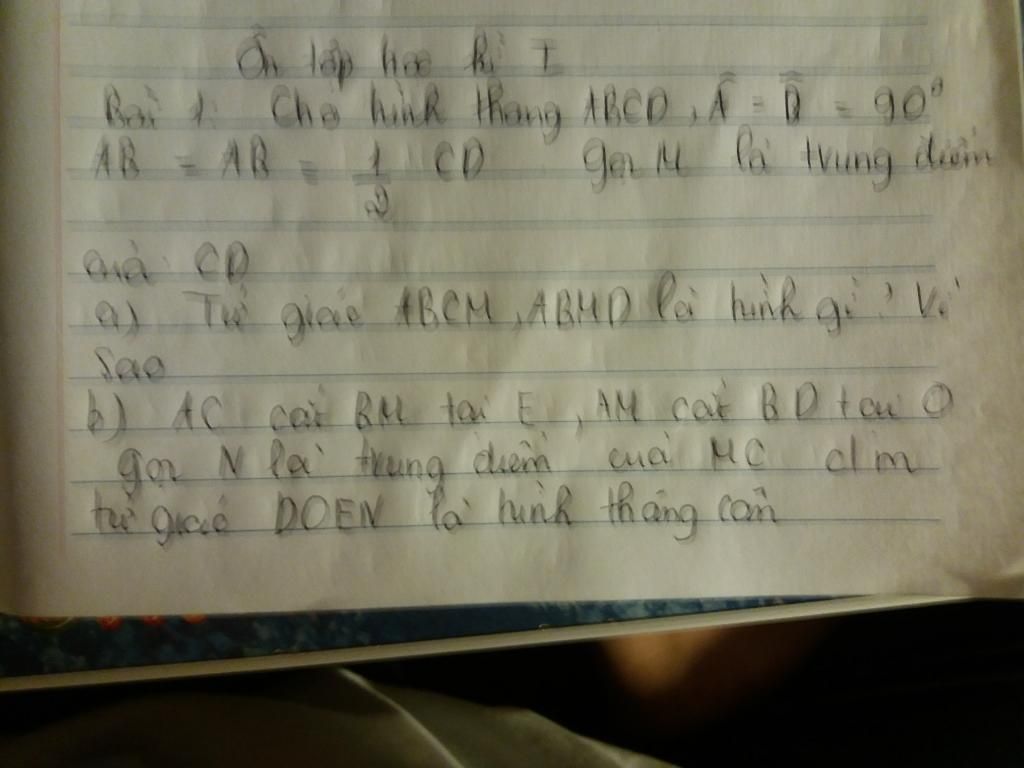 Ôn tập học kì I
Bài 1: Cho hình thang ABCD, Â = D̂ = 90°
AB = AB = 1/2 CD gọi M là trung điểm
của CD
a) Tứ giác ABCM, ABMD là hình gì? Vì
sao
b) AC cắt BM tại E, AM cắt BD tại O
gọi N là trung điểm của MC c/m
tứ giác DOEN là hình thang cân